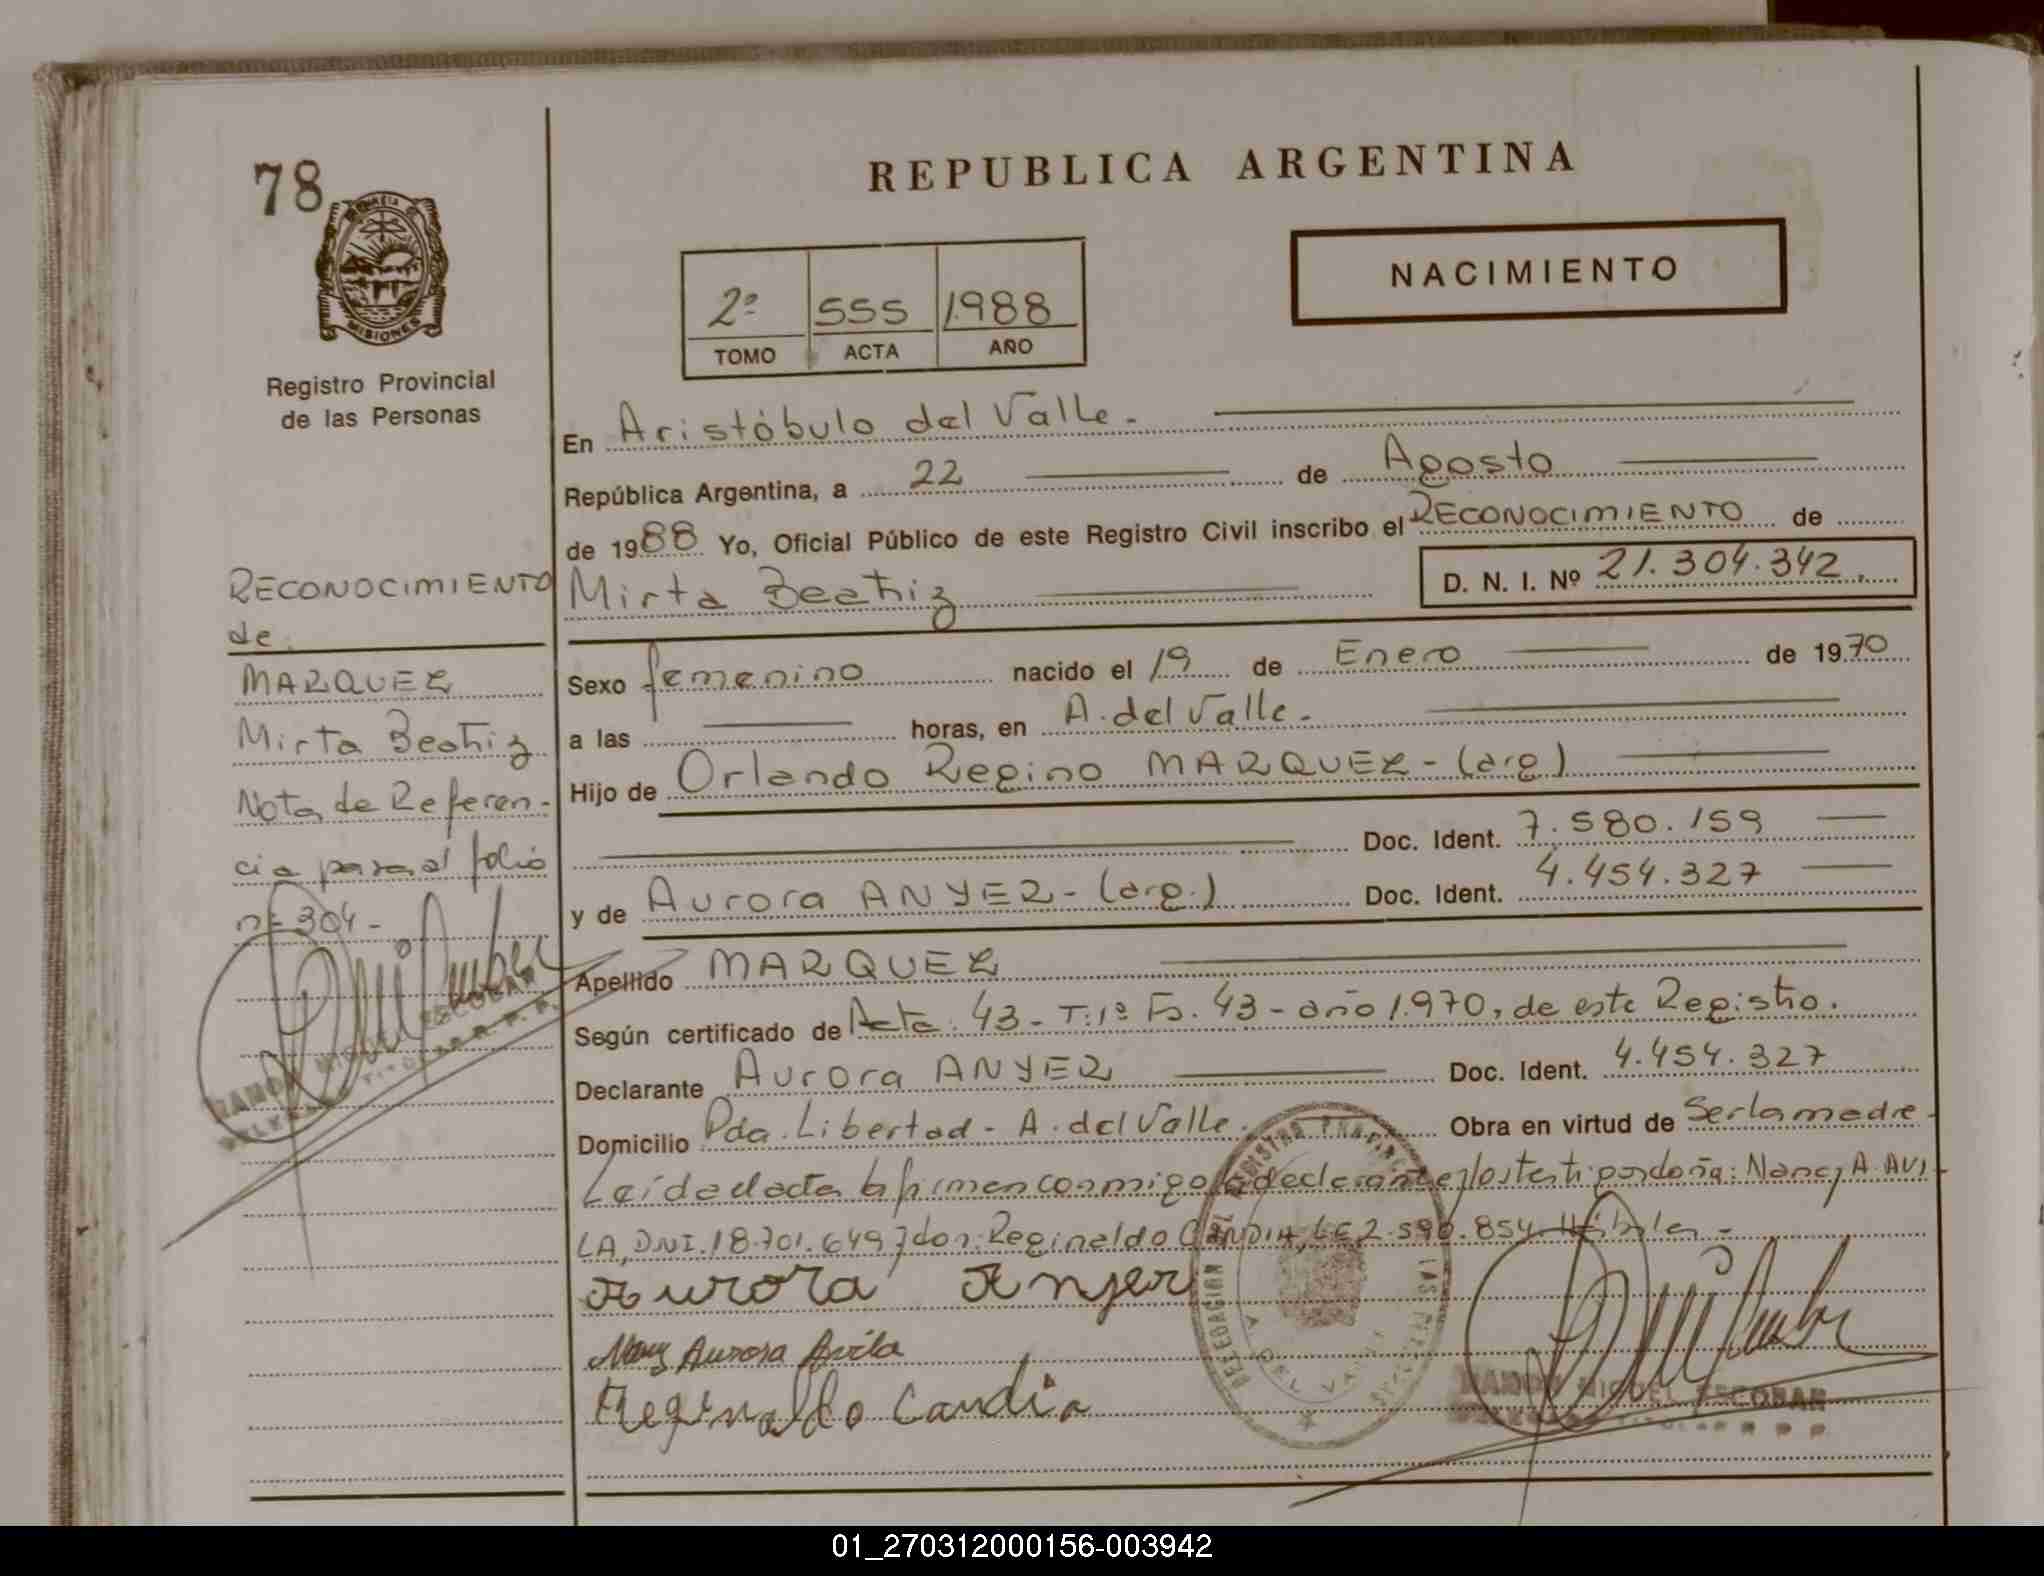 78
PROVINCIA DE
MISIONES
Registro Provincial
de las Personas
REPUBLICA ARGENTINA
NACIMIENTO
2º 555 1988
TOMO ACTA AÑO
En Aristóbulo del Valle.-
República Argentina, a 22 de Agosto
de 1988 Yo, Oficial Público de este Registro Civil inscribo el RECONOCIMIENTO de
Mirta Beatriz D. N. I. Nº 21.304.342.
Sexo femenino nacido el 19 de Enero de 1970
a las horas, en A. del Valle.-
Hijo de Orlando Regino MARQUEZ - (arg)
Doc. Ident. 7.580.159
y de Aurora ANYER - (arg.) Doc. Ident. 4.454.327
Apellido MARQUEZ
Según certificado de Acta. 43 - T: 1º Fs. 43 - año 1.970, de este Registro.
Declarante Aurora ANYER Doc. Ident. 4.454.327
Domicilio Pda. Libertad - A. del Valle. Obra en virtud de Ser la madre -
Leída el acta la firman conmigo la declarante y los testigos doña: Nancy A. AVI-
LA, DNI. 18.701.649 y don: Reginaldo CANDIA, LE 2.590.854 Hábiles -
Aurora Anyer
Nancy Aurora Avila
Reginaldo Candia
RAMON MIGUEL ESCOBAR
RECONOCIMIENTO
de.
MARQUEZ
Mirta Beatriz
Nota de Referen-
cia pasa al folio
nº 304 -
RAMON MIGUEL ESCOBAR
01_270312000156-003942